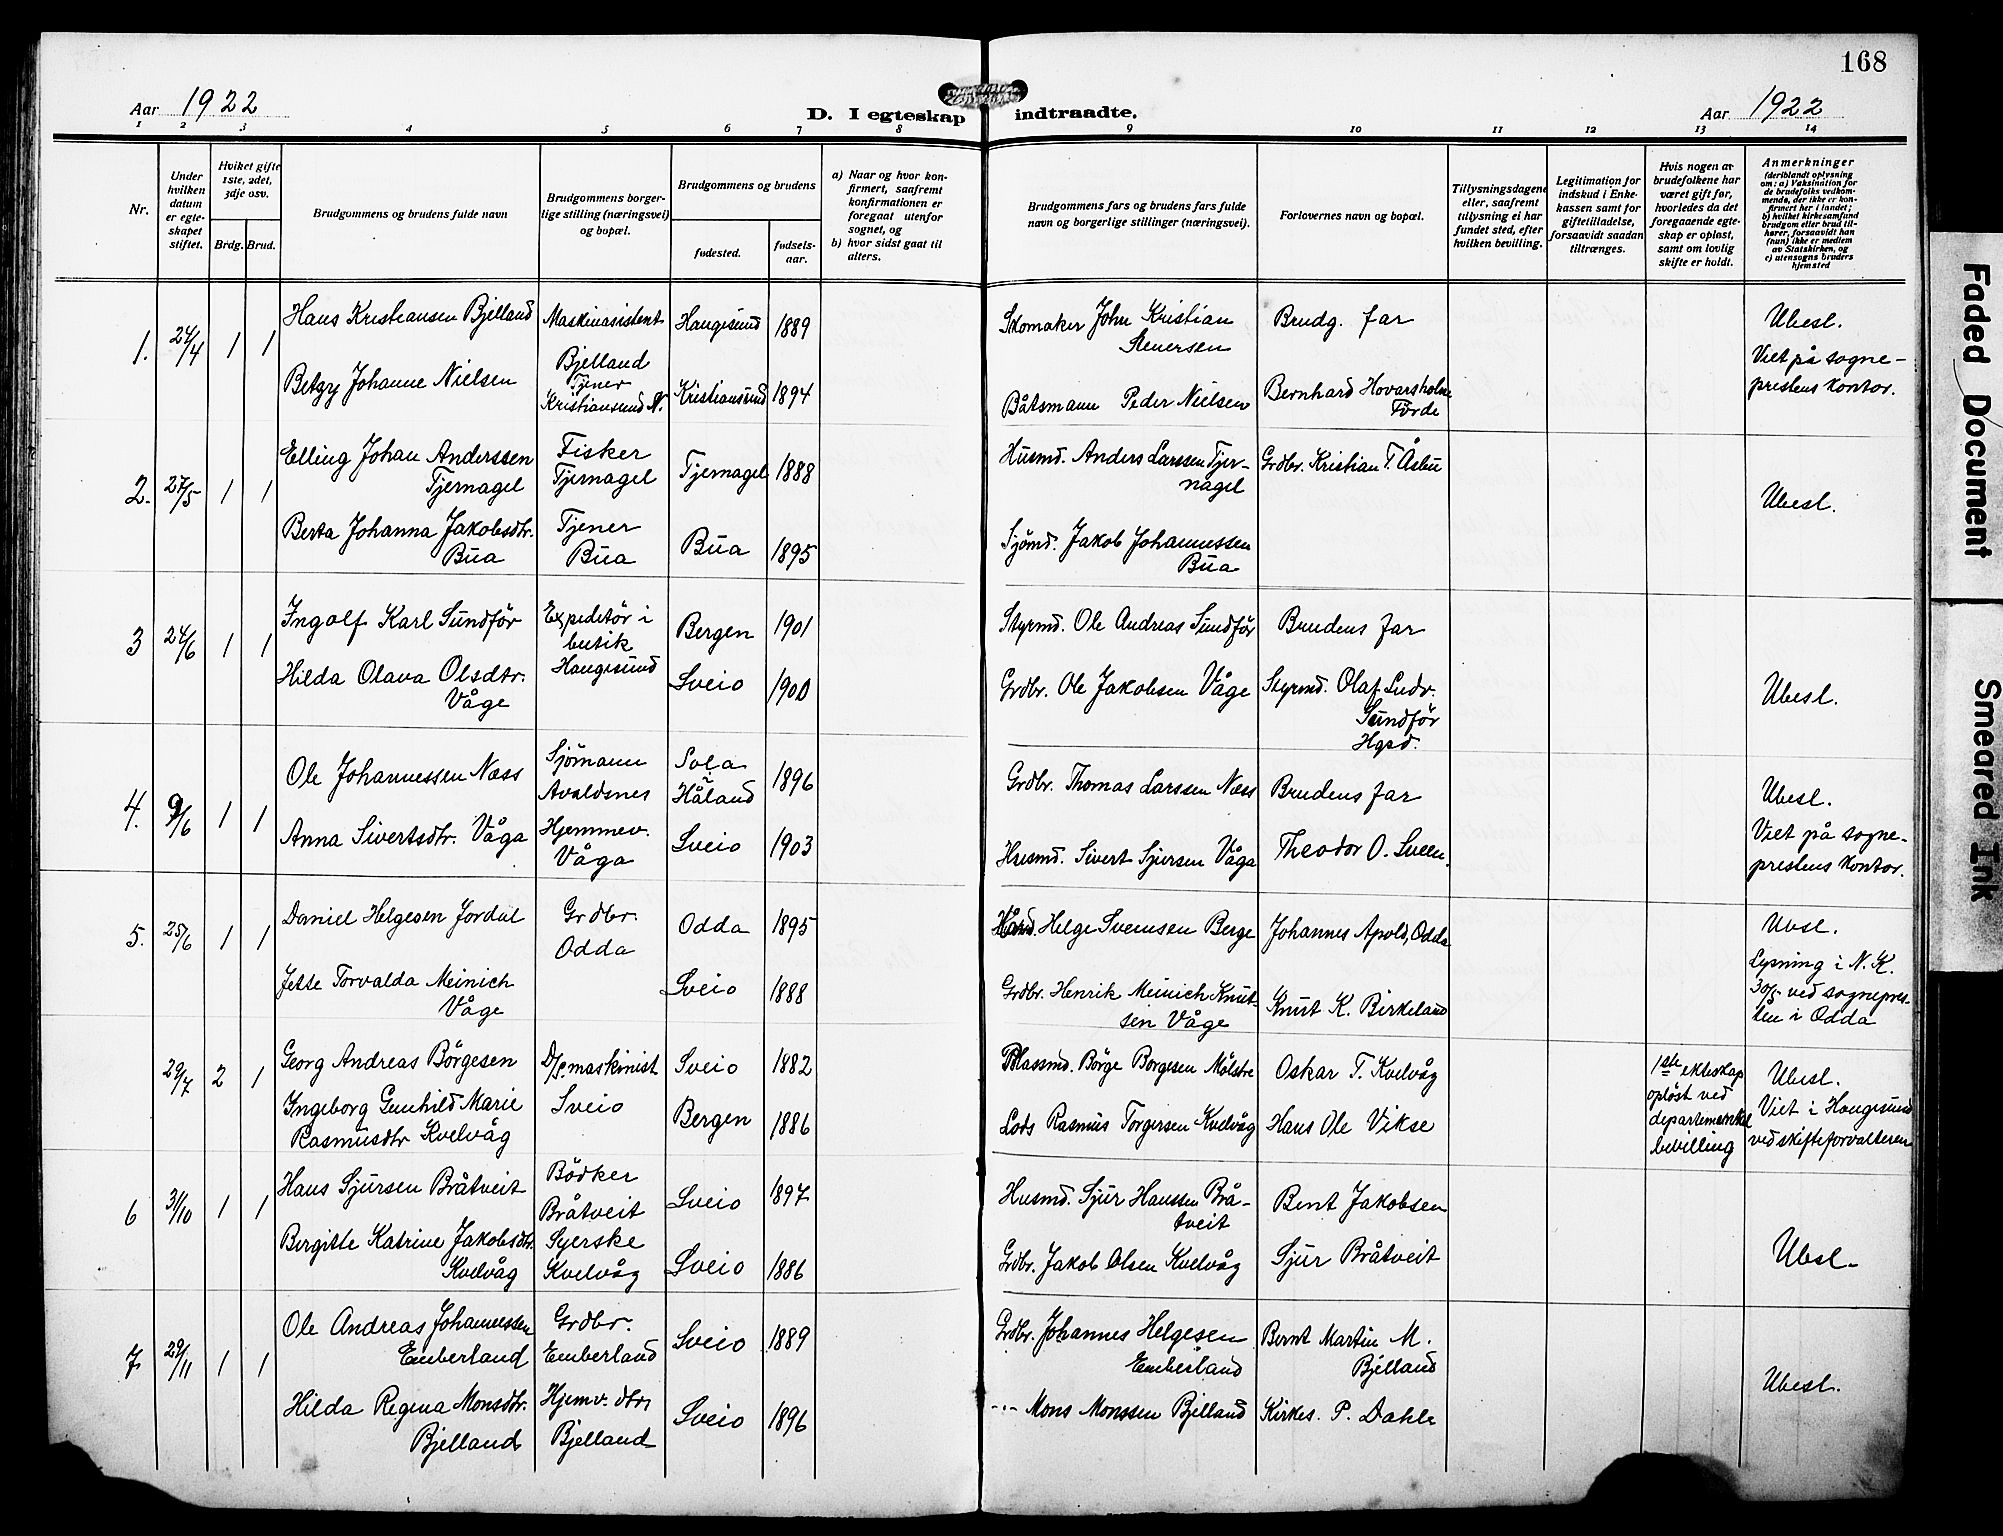 168
Aar 1922
D. I egteskap indtraadte.
Aar 1922
1 2 3 4 5 6 7 8 9 10 11 12 13 14
Nr.
Under hvilken datum er egteskapet stiftet.
Hviket gifte 1ste, 2det, 3dje osv.
Brdg. Brud.
Brudgommens og brudens fulde navn
Brudgommens borgerlige stilling (næringsvei) og bopæl.
Brudgommens og brudens
fødested.
fødselsaar.
a) Naar og hvor konfirmert, saafremt konfirmationen er foregaat utenfor sognet, og
b) hvor sidst gaat til alters.
Brudgommens fars og brudens fars fulde navn og borgerlige stillinger (næringsvei).
Forlovernes navn og bopæl.
Tillysningsdagene eller, saafremt tillysning ei har fundet sted, efter hvilken bevilling.
Legitimation for indskud i Enkekassen samt for giftetilladelse, forsaavidt saadan tiltrænges.
Hvis nogen av brudefolkene har været gift før, hvorledes da det foregaaende egteskap er opløst, samt om lovlig skifte er holdt.
Anmerkninger
(deriblandt oplysning om: a) Vaksination for de brudefolks vedkommende, der ikke er konfirmert her i landet; b) hvilket kirkesamfund brudgom eller brud tilhører, forsaavidt han (hun) ikke er medlem av Statskirken, og c) utensogns bruders hjemsted
1. 24/4 1 1
Hans Kristiansen Bjelland
Maskinasistent
Bjelland
Haugesund 1889
Skomaker John Kristian
Brudg. far
Ubesl.
Viet på sogne-
prestens kontor.
Betzy Johanne Nielsen
Tjener
Kristiansund N.
Kristiansund 1894
Båtsmann Peder Nielsen
Bernhard Hovarsholm
Førde
2. 27/5 1 1
Elling Johan Anderssen
Tjernagel
Fisker
Tjernagel
Tjernagel 1888
Husmd. Anders Larssen Tjer-
nagel
Grdbr. Kristian T. Åsbu
Ubesl.
Berta Johanna Jakobsdtr.
Bua
Tjener
Bua
Bua 1895
Sjømd. Jakob Johannessen
Bua
3 24/6 1 1
Ingolf Karl Sundför
Expeditör i
butik
Haugesund
Bergen 1901
Styrmd. Ole Andreas Sundför
Brudens far
Hilda Olava Olsdtr.
Våge
Sveio 1900
Grdbr. Ole Jakobsen Våge
Styrmd. Olaf Ludv.
Sundför
Hgsd.
Ubesl.
4. 9/6 1 1
Ole Johannessen Næss
Sjömann
Avaldsnes
Sola
i
Håland 1896
Grdbr. Thomas Larssen Næss
Brudens far
Ubesl.
Viet på sogne-
prestens kontor.
Anna Sivertsdtr. Våga
Hjemmev.
Våga
Sveio 1903
Husmd. Sivert Sjursen Våga
Theodor O. Sveen.
5. 25/6 1 1
Daniel Helgesen Jordal
Grdbr.
Odda
Odda 1895
Helge Svensen Berge
Johannes Apold, Odda
Ubsl.
Lysning i N. K.
30/5 ved sognepres-
ten i Odda
Jette Torvalda Meinich
Våge
Sveio 1888
Grdbr. Henrik Meinich Knut-
sen Våge
Knut K. Birkeland
29/7 2 1
Georg Andreas Börgesen
D/s. maskinist
Sveio
Sveio 1882
Plassmd. Börge Borgesen Mölstre
Oskar T. Kvelvåg
1ste ekteskap
oplöst ved
departementel
bevilling
Ubesl.
Viet i Haugesund
ved skifteforvalteren
Ingeborg Gunhild Marie
Rasmusdtr Kvelvåg
Bergen 1886
Lods Rasmus Torgersen Kvelvåg
Hans Ole Vikse
6 3/10 1 1
Hans Sjursen Bråtveit
Bödker
Bråtveit
Sveio 1897
Husmd. Sjur Hanssen Brå-
tveit
Bent Jakobsen
Ubsl.
Bergitte Katrine Jakobsdtr.
Kvelvåg
Syerske
Kvelvåg
Sveio 1886
Grdbr. Jakob Olsen Kvelvåg
Sjur Bråtveit
7. 29/11 1 1
Ole Andreas Johannessen
Emberland
Grdbr.
Emberland
Sveio 1889
Grdbr. Johannes Helgesen
Emberland
Bernt Martin M.
Bjelland
Ubesl.
Hilda Regina Monsdtr.
Bjelland
Hjemv. dtr.
Bjelland
Sveio 1896
-"- Mons Monssen Bjelland
Kirkes. P. Dahle
Faded Document
Smeared Ink